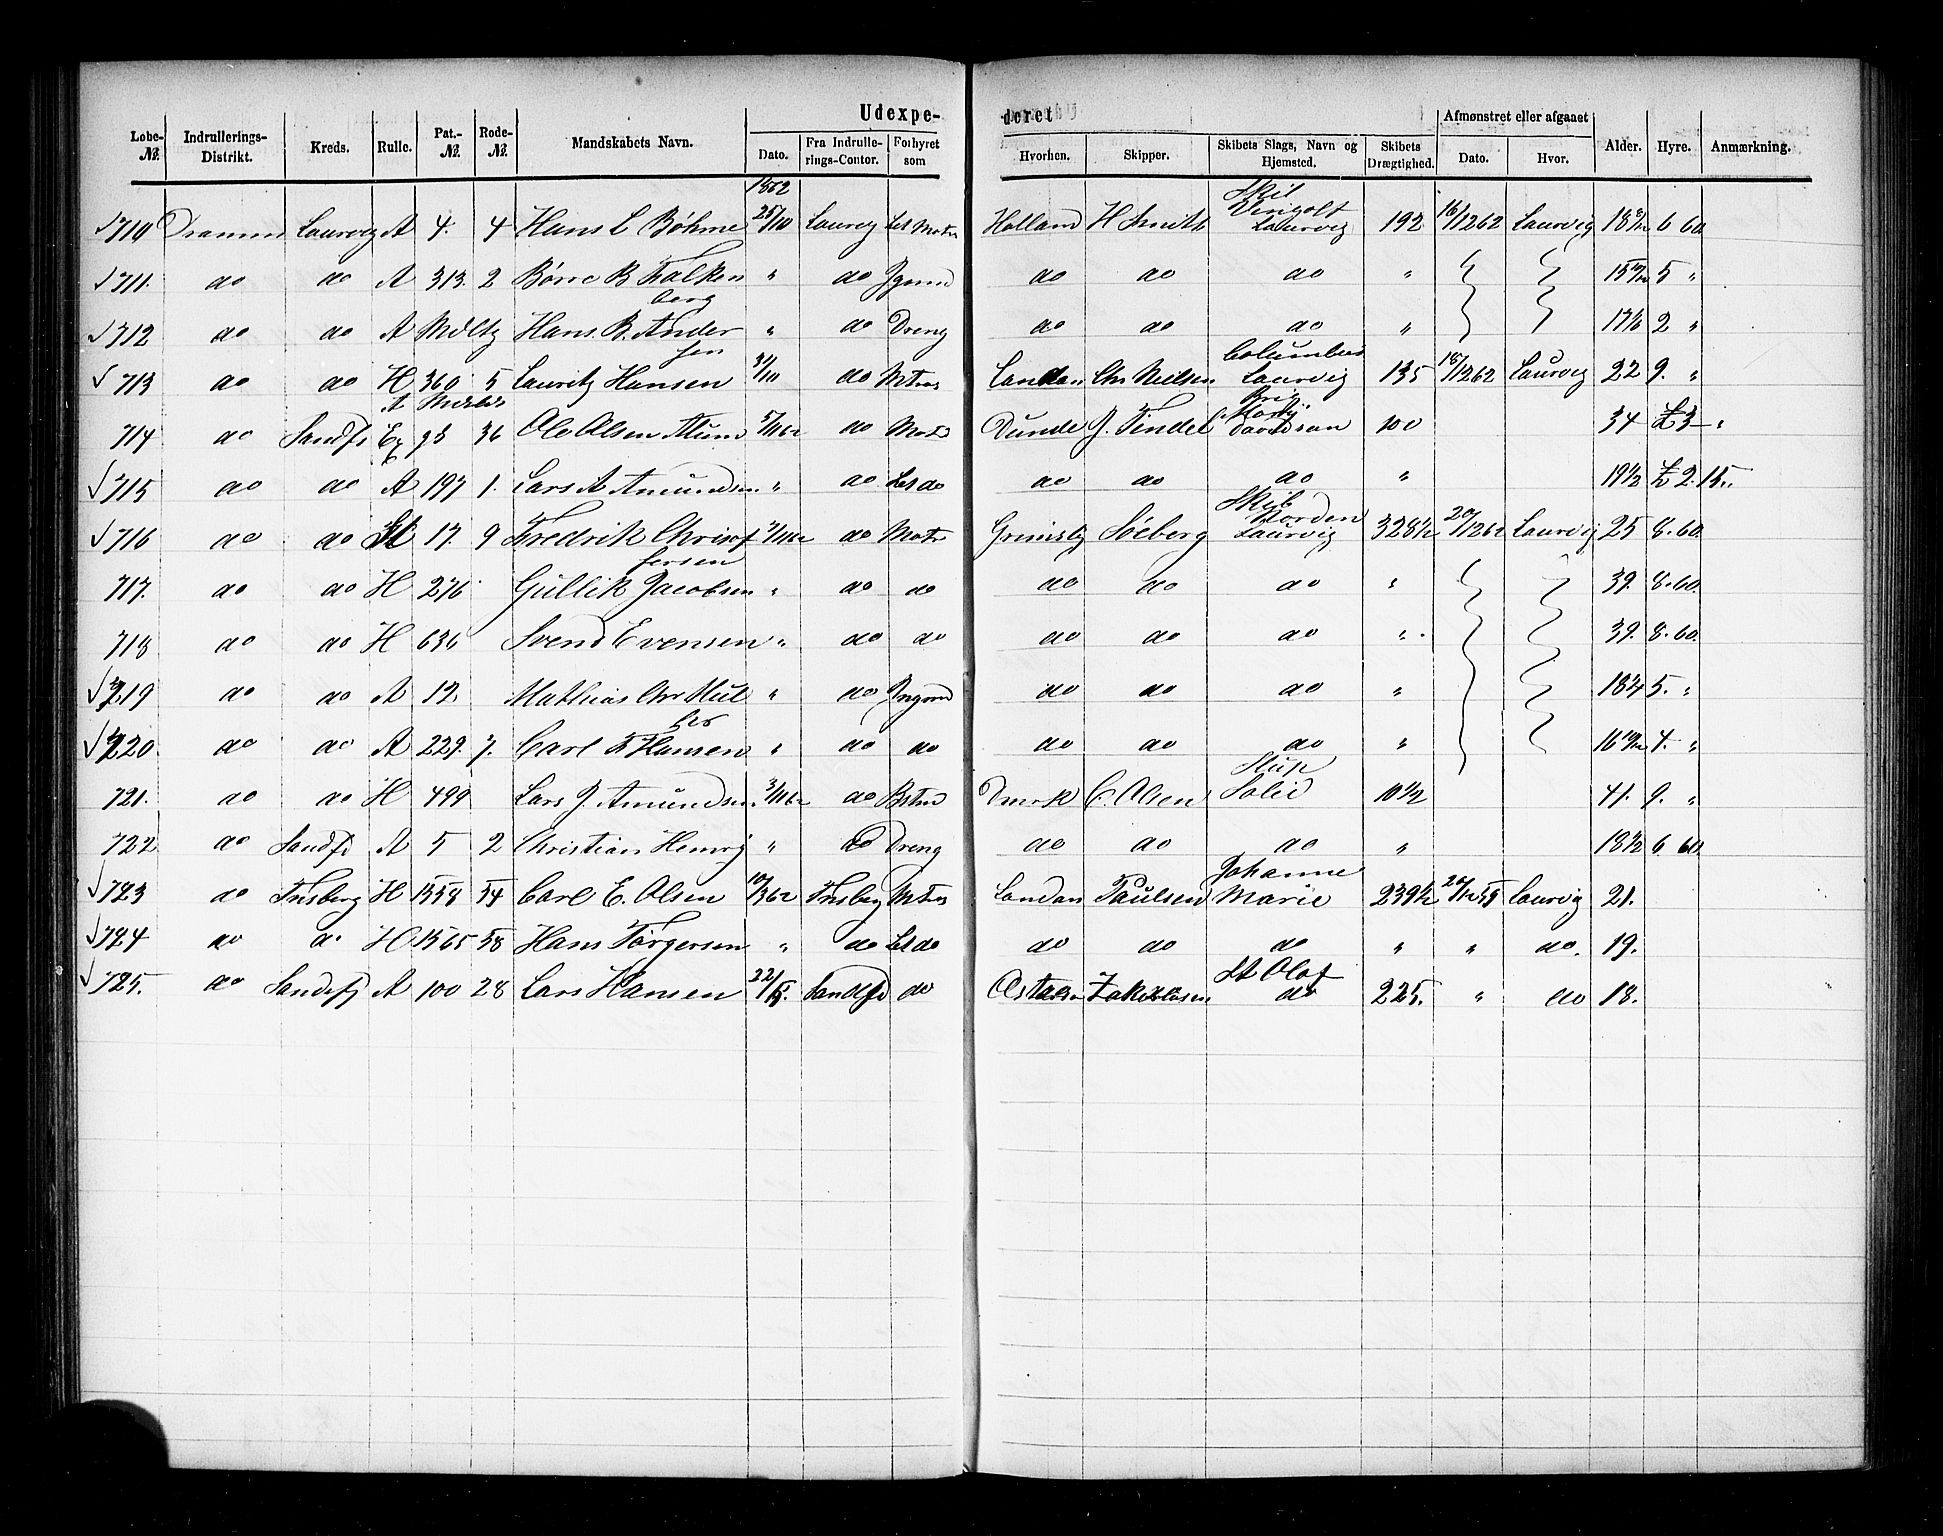 Udexpe- deret
Løbe-№. Indrullerings-Distrikt. Kreds. Rulle. Pat.-№. Rode-№. Mandskabets Navn. Dato. Fra Indrullerings-Contor. Forhyret som Hvorhen. Skipper. Skibets Slags, Navn og Hjemsted. Skibets Drægtighed. Afmønstret eller afgaaet Dato. Hvor. Alder. Hyre. Anmærkning.
1862
710 Drammen Laurvig A 4. 4 Hans L Bøhme 25/10 Laurvig Let Matr Holland H Smith Skib Laurvig 192 16/12 62 Laurvig 18 6 60
711. do do A 313. 2 Børre B Falkenberg " do Jgmd do do do " 15 5 "
712 do do A Hans B. Andersen " do Dreng do do do " 17 2 "
713 do do H 360 5 Lauritz Hansen 31/10 do Mtros London Chr Nielsen Columbus Laurvig 135 18/12 62 Laurvig 22 9. "
714 do Sandfj 93 36 Ole Olsen 5/11 62 do Matr J. Tindel Brig Davidson 100 34 £3 "
715 do do A 197 1. Lars A Amundsen " do Let do do do do " 19 1/2 £ 2. 15.
716 do do 17. 9 Fredrik Christoffersen 7/11 62 do Matr Grimsby Søeberg Skib Norden Laurvig 328 1/2 20/12 62 Laurvig 25 8. 60.
717. do do H 276 Gullik Jacobsen " do do do do do " 39. 8. 60.
718 do do H 636 Svend Evensen " do do do do do " 39. 8. 60.
719 do do A 12. Mathias Chr " do Jngmd do do do " 18 5. "
720. do do A 229. 7. Carl F Hansen " do do do do do " 16 4. "
721. do do H 499 Lars J Amundsen 3/11 62 do Bstmd Dmrk C. Olsen Slup Solid 10 1/2 41. 9. "
722 do Sandfj A 5 2 Christian Henrig " do Dreng do do do " 18 1/2 6 60.
723 do Tnsberg H 1558 54 Carl E. Olsen 10/3 62 Tnsberg Mtros London Paulsen Johanne Marie 239 1/2 Laurvig 21.
724 do do H 1565 58 Hans Torgersen " do Let do do do do " " do. 19.
725. do Sandefj A 100 28 Lars Hansen Sandfjd do St Olaf do 225. " do 18.